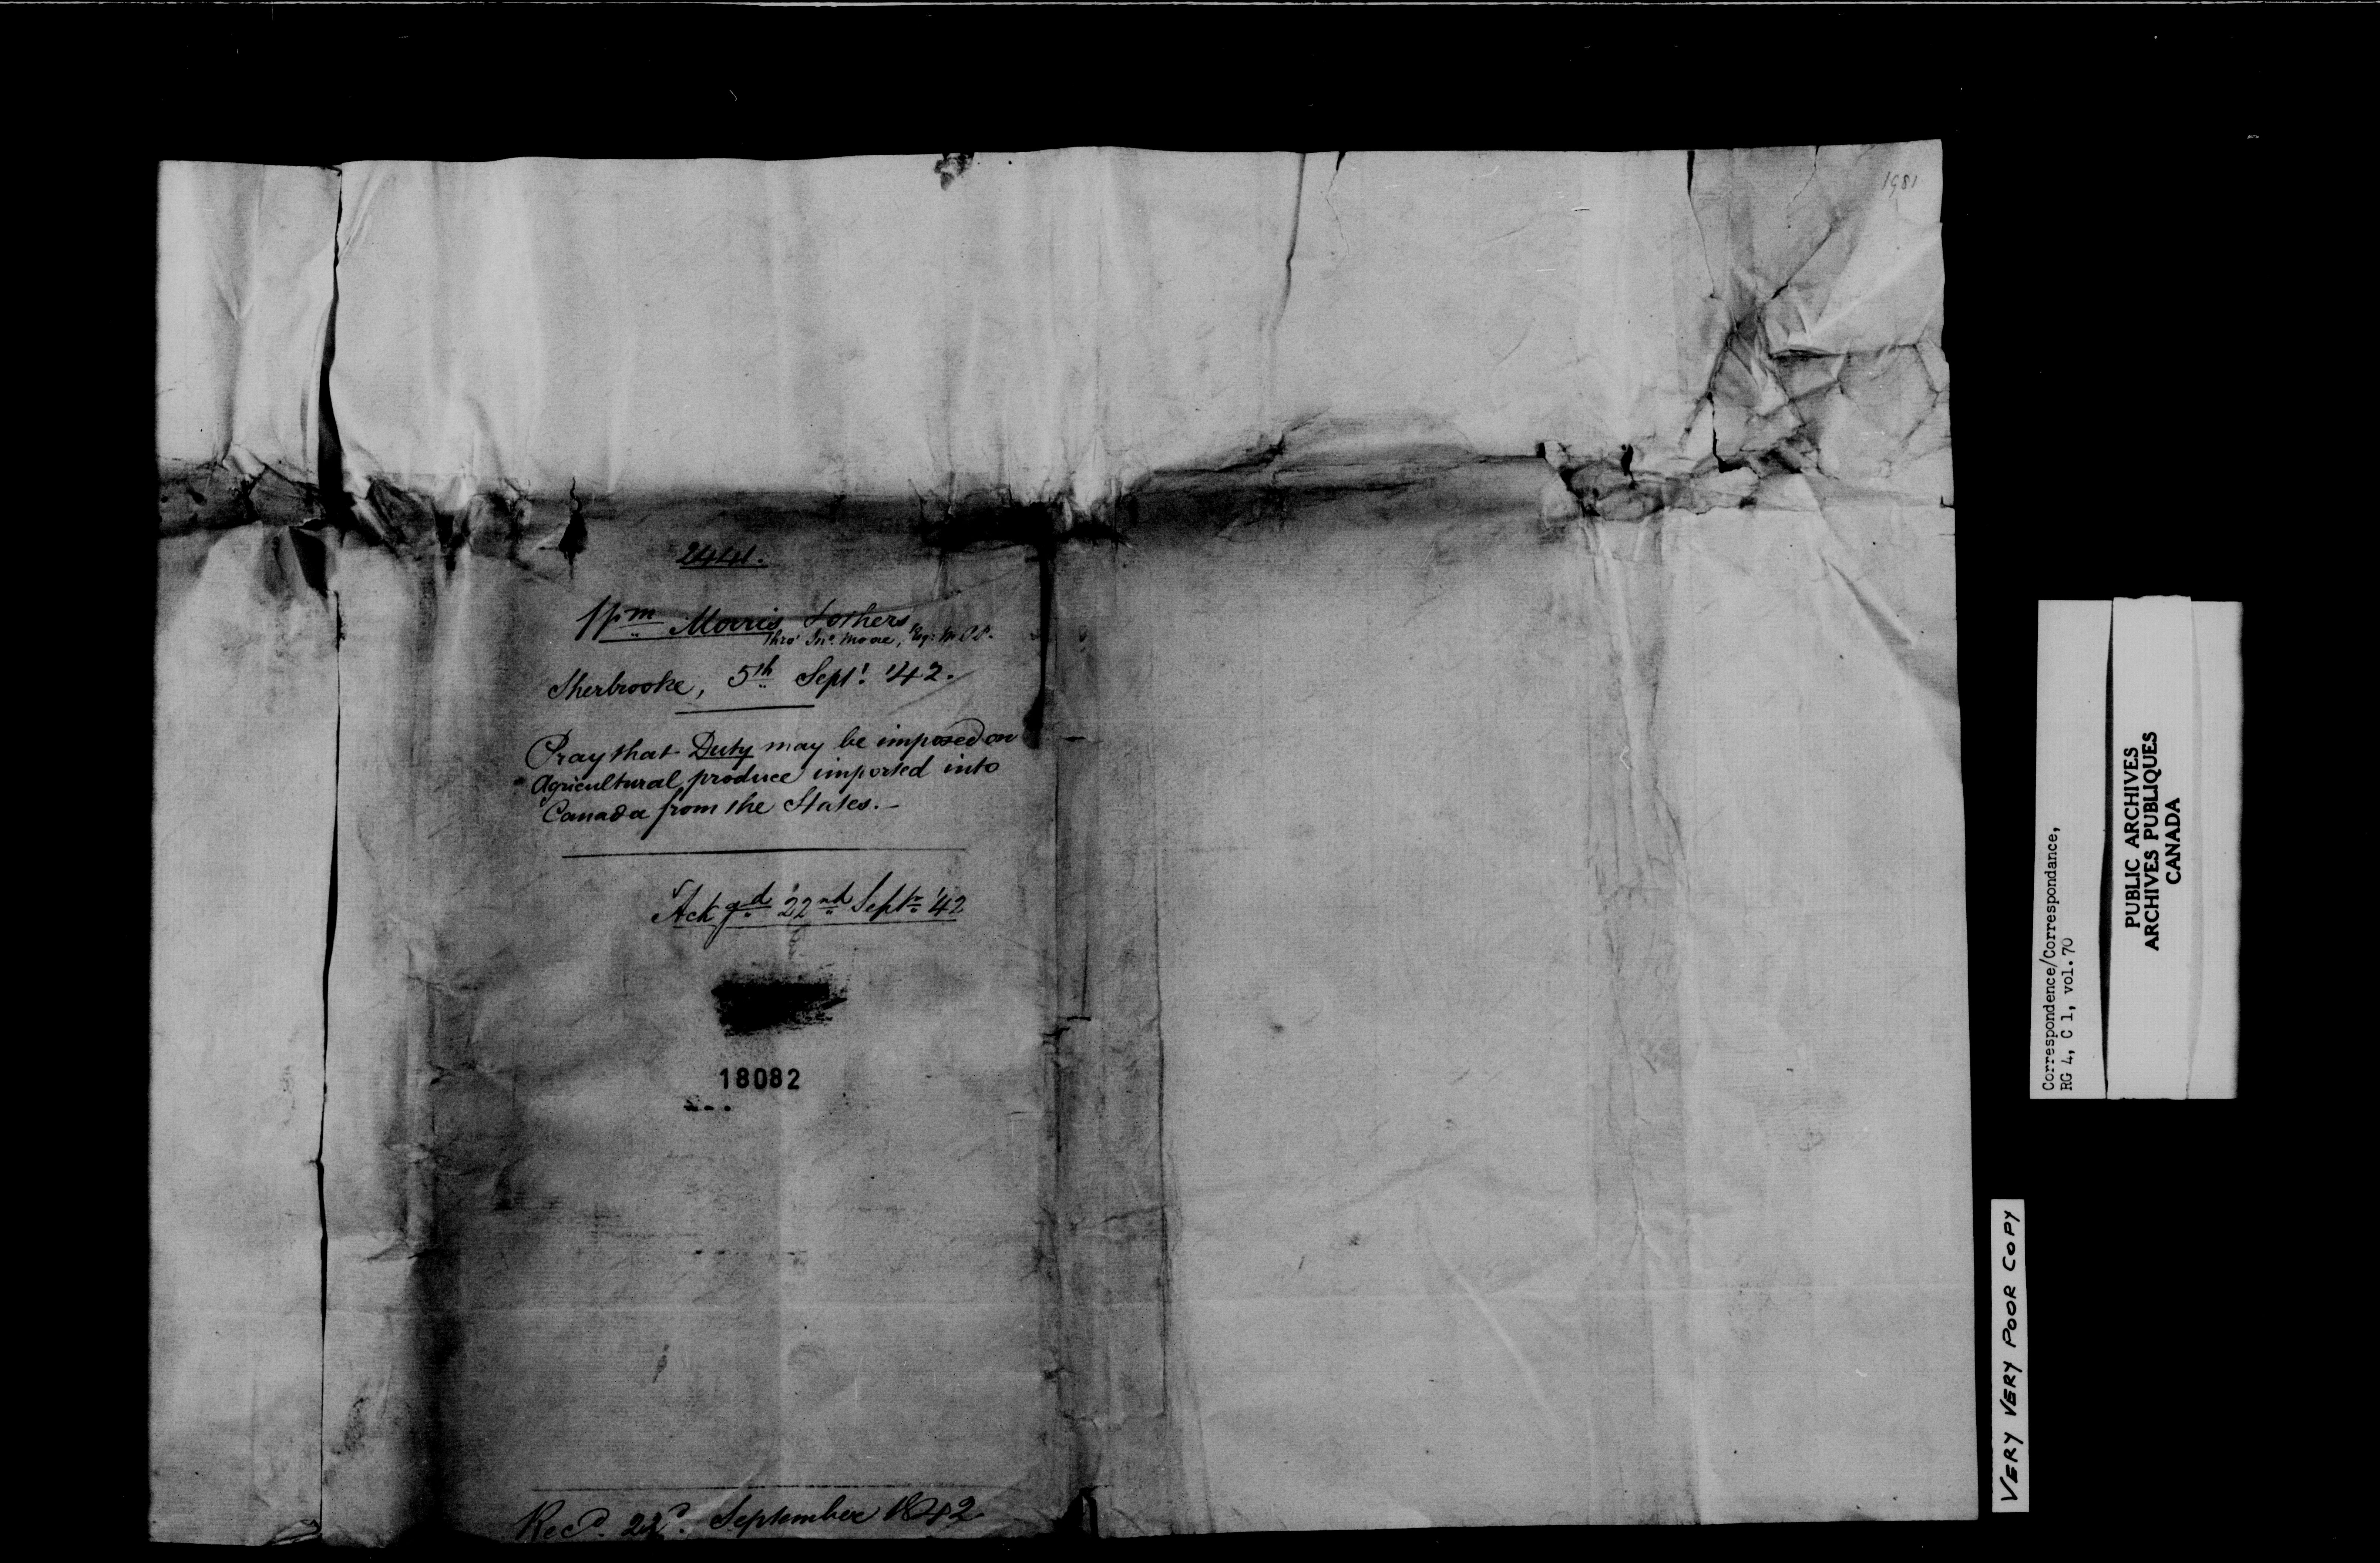 1981
2441.
Wm Morris & others
Thro' Jno. Moore, Esq: M.P.P.
Sherbrooke, 5th Sept! '42.
Pray that Duty may be imposed on
Agricultural produce imported into
Canada from the States. -
Ackgd 22nd Septr '42
18082
Recd. 22d. September 1842
Correspondence/Correspondance,
RG 4, C 1, vol. 70
PUBLIC ARCHIVES
ARCHIVES PUBLIQUES
CANADA
VERY VERY POOR COPY